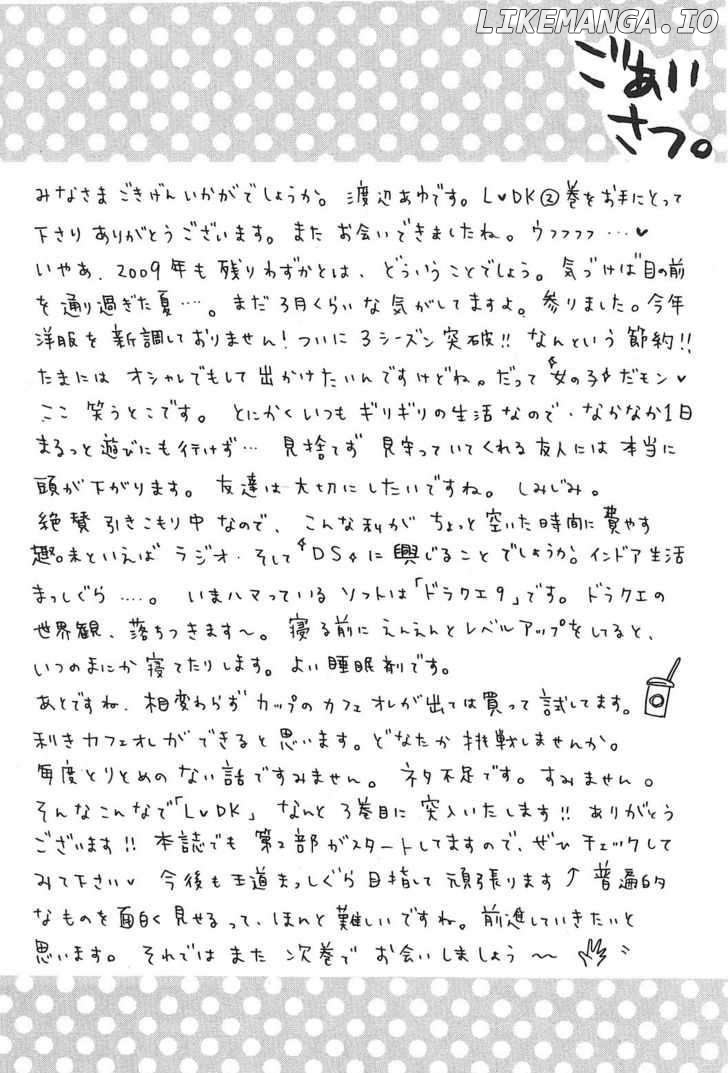 LIKEMANGA.IO
ごあい
さつ。
みなさま ごきげんいかがでしょうか。 渡辺あゆです。 L♥DK②巻をお手にとって
下さり ありがとうございます。 また お会いできましたね。 ウフフフフ…♥
いやあ、2009年も残りわずかとは、どういうことでしょう。 気づけば目の前
を通り過ぎた夏……。 まだ3月くらいな気がしてますよ。 参りました。今年
洋服を新調しておりません! ついに3シーズン突破!! なんという節約!!
たまには オシャレでもして出かけたいんですけどね。だって 女の子 だモン♥
ここ 笑うとこです。 とにかくいつもギリギリの生活なので、なかなか1日
まるっと遊びにも行けず… 見捨てず 見守っていてくれる友人には本当に
頭が下がります。 友達は大切にしたいですね。 しみじみ。
絶賛引きこもり中なので、こんな私が ちょっと空いた時間に費やす
趣味といえば ラジオ・そして "DS" に興じることでしょうか。インドア生活
まっしぐら……。 いまハマっているソフトは「ドラクエ9」です。 ドラクエの
世界観、落ちつきます〜。 寝る前にえんえんとレベルアップをしてると、
いつのまにか寝てたりします。よい睡眠剤です。
あとですね、相変わらずカップのカフェオレが出ては買って試してます。
利きカフェオレができると思います。どなたか挑戦しませんか。
毎度とりとめのない話ですみません。 ネタ不足です。すみません。
そんなこんなで「L♥DK」 なんと3巻目に突入いたします!! ありがとう
ございます!! 本誌でも第2部がスタートしてますので、ぜひチェックして
みて下さい♥ 今後も王道まっしぐら目指して頑張ります↑ 普遍的
なものを面白く見せるって、ほんと難しいですね。前進していきたいと
思います。 それではまた 次巻で お会いしましょう〜